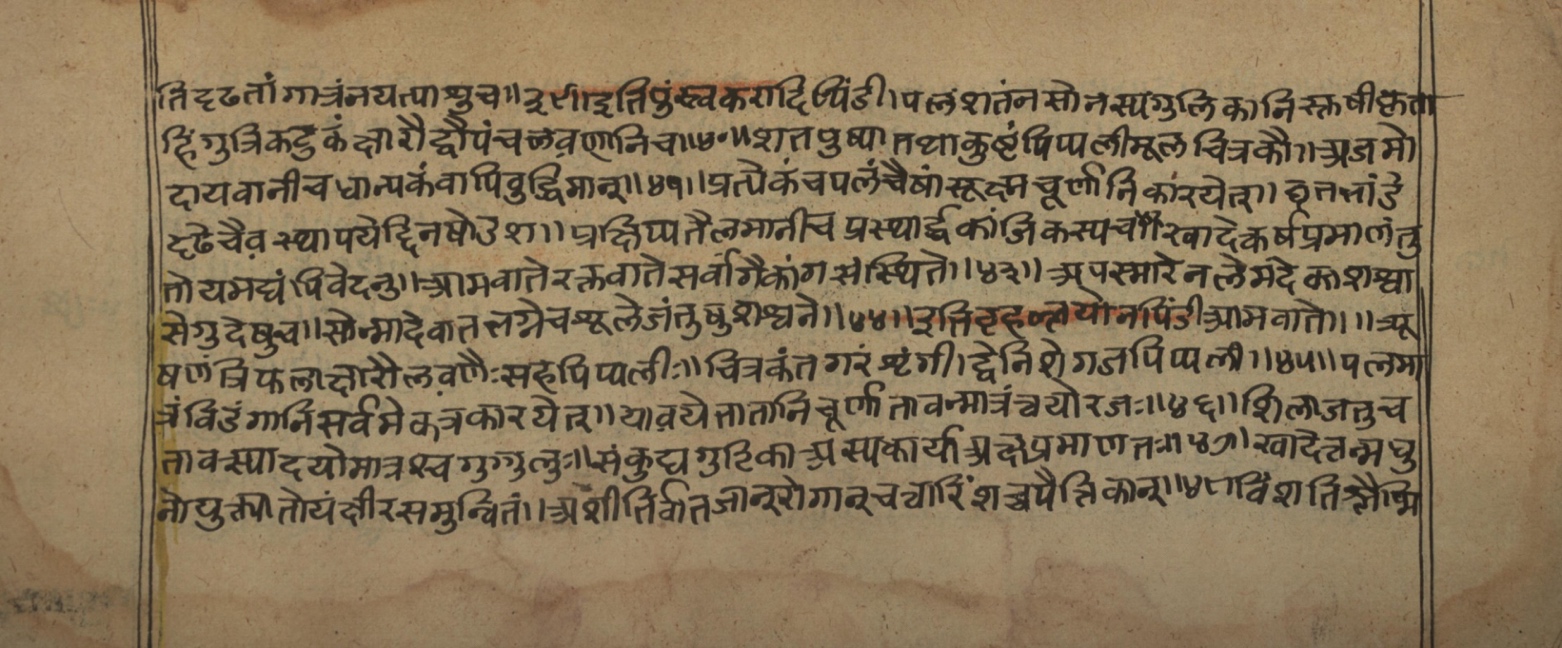 तिदृढतां गात्रंनयत्याशुच॥३९॥इतिपुंस्त्वकरादिपिंडी।पलंशतंनसोनस्यगुलिकानिस्तुषीकृता
हिंगुत्रिकटुकंक्षारौद्वौपंचलवणानिच॥४०॥शतपुष्पातथाकुष्टंपिप्पलीमूलचित्रकौ॥अजमो
दायवानीचधान्यकंवापिबुद्धिमान्॥४१॥प्रत्येकंचपलंचैषांसूक्ष्मचूर्णानिकारयेत्॥घृतभांडे
दृढेचैवस्थापयेद्दिनषोडश॥प्रक्षिप्यतैलमानीचप्रस्थार्द्धकांजिकस्यच॥खादेकर्षप्रमाणंतु
तोयमद्यंपिवेदनु॥आमवातेरक्तवातेसर्वांगैकांगसंस्थिते॥४३॥अपस्मारेनलेमंदेकाशश्वा
सेगुदेषुच॥सोन्मादेवातभग्नेचशूलेजंतुषुशश्वने॥४४॥इतिबृहल्लसोनपिंडीआमवाते॥॥त्र्यू
षणंत्रिफलाक्षारौलवणैःसहपिप्पलीः॥चित्रकंतगरंशृंगी।द्वेनिशेगजपिप्पली॥४५॥पलमा
त्रंविडंगानिसर्वमेकत्रकारयेत्॥यावयेत्तातानिचूर्णातावन्मात्रंत्वयोरजः॥४६॥शिलाजतुच
तावस्यादयोमात्रश्चगुग्गुलुः॥संकुट्यगुटिकाअस्यकार्याअक्षप्रमाणतः॥४७॥खादेत्तन्मधु
नोयुक्तातोयंक्षीरसमुन्वितं॥अशीतिर्वातजान्रोगान्चत्वारिंशच्चपैत्तिकान्॥४८विंशतिश्लैष्मि